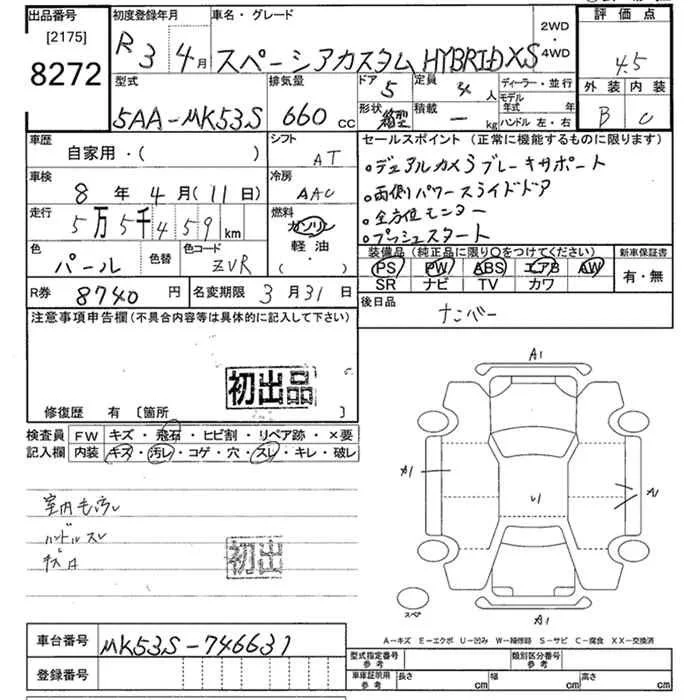 出品番号 初度登録年月 車名・グレード 2WD・4WD 評価点
[2175]
8272
R3 4月 スペーシアカスタム HYBRID XS 4.5
型式 排気量 ドア 5 定員 4人 ディーラー・並行 外装 内装
5AA-MK53S 660cc 形状 箱型 積載 ー kg モデル年式 年 ハンドル 左・右 B C
車歴 自家用・( ) シフト AT セールスポイント (正常に機能するものに限ります)
・デュアルカメラブレーキサポート
車検 8年4月(11日) 冷房 AAC
・両側パワースライドドア
走行 5万5千459km 燃料 ガソリン・軽油・( )
・全方位モニター
・プッシュスタート
色 パール 色替 色コード ZVR
装備品 (純正品に限り○をつけてください) 新車保証書
PS PW ABS エアB AW 有・無
SR ナビ TV カワ
R券 8740円 名変期限 3月31日
後日品 ナンバー
注意事項申告欄(不具合内容等は具体的に記入して下さい)
初出品
修復歴 有 [箇所 ]
検査員記入欄 FW キズ・飛石・ヒビ割・リペア跡・×要
内装 キズ・汚レ・コゲ・穴・スレ・キレ・破レ
ハンドルスレ
初出
A1
A1
A1
スペア
A-キズ E-エクボ U-凹み W-補修跡 S-サビ C-腐食 XX-交換済
車台番号 MK53S-746631
型式指定番号 参考 類別区分番号 参考
登録番号
車庫証明用 参考 長さ cm 幅 cm 高さ cm